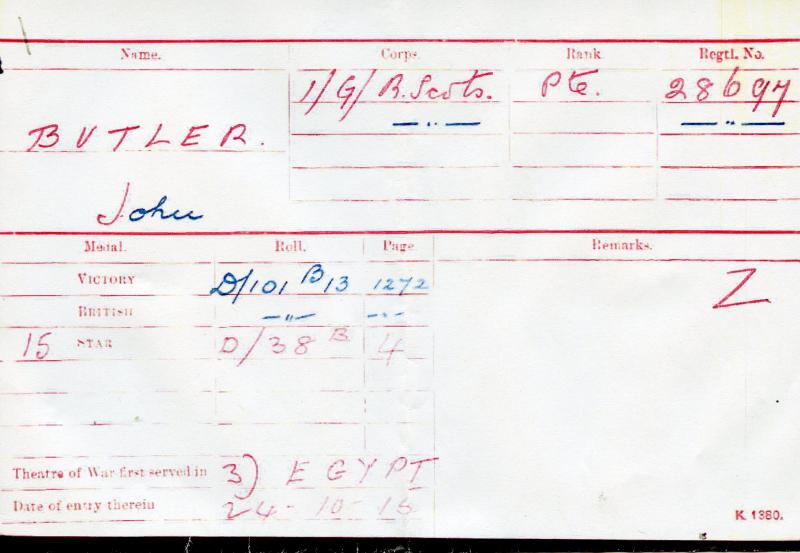 Name. Corps. Rank. Regtl. No.
1/G/R.Scots. Pte. 28697
BUTLER. — " — — " —
John
Medal. Roll. Page. Remarks.
VICTORY D/101 B13 1272 Z
BRITISH — " — — " —
15 STAR D/38 B 4
Theatre of War first served in 3) EGYPT
Date of entry therein 24-10-15
K 1380.